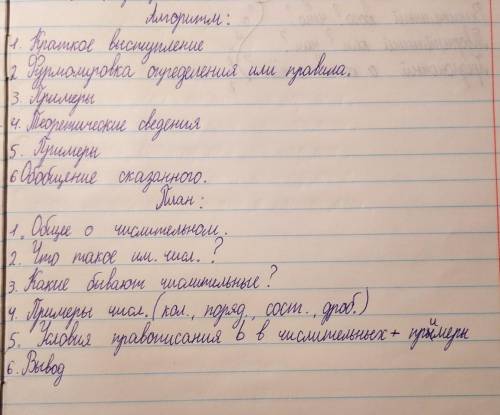 Алгоритм:
1. Краткое выступление
2 Формулировка определения или правила.
3. Примеры
4. Теоретические сведения
5. Примеры
6 Обобщение сказанного.
План:
1. Общее о числительном.
2. Что такое им. числ. ?
3. Какие бывают числительные?
4. Примеры числ. (кол., поряд., сост., дроб.)
5. Условия правописания ь в числительных + примеры
6. Вывод